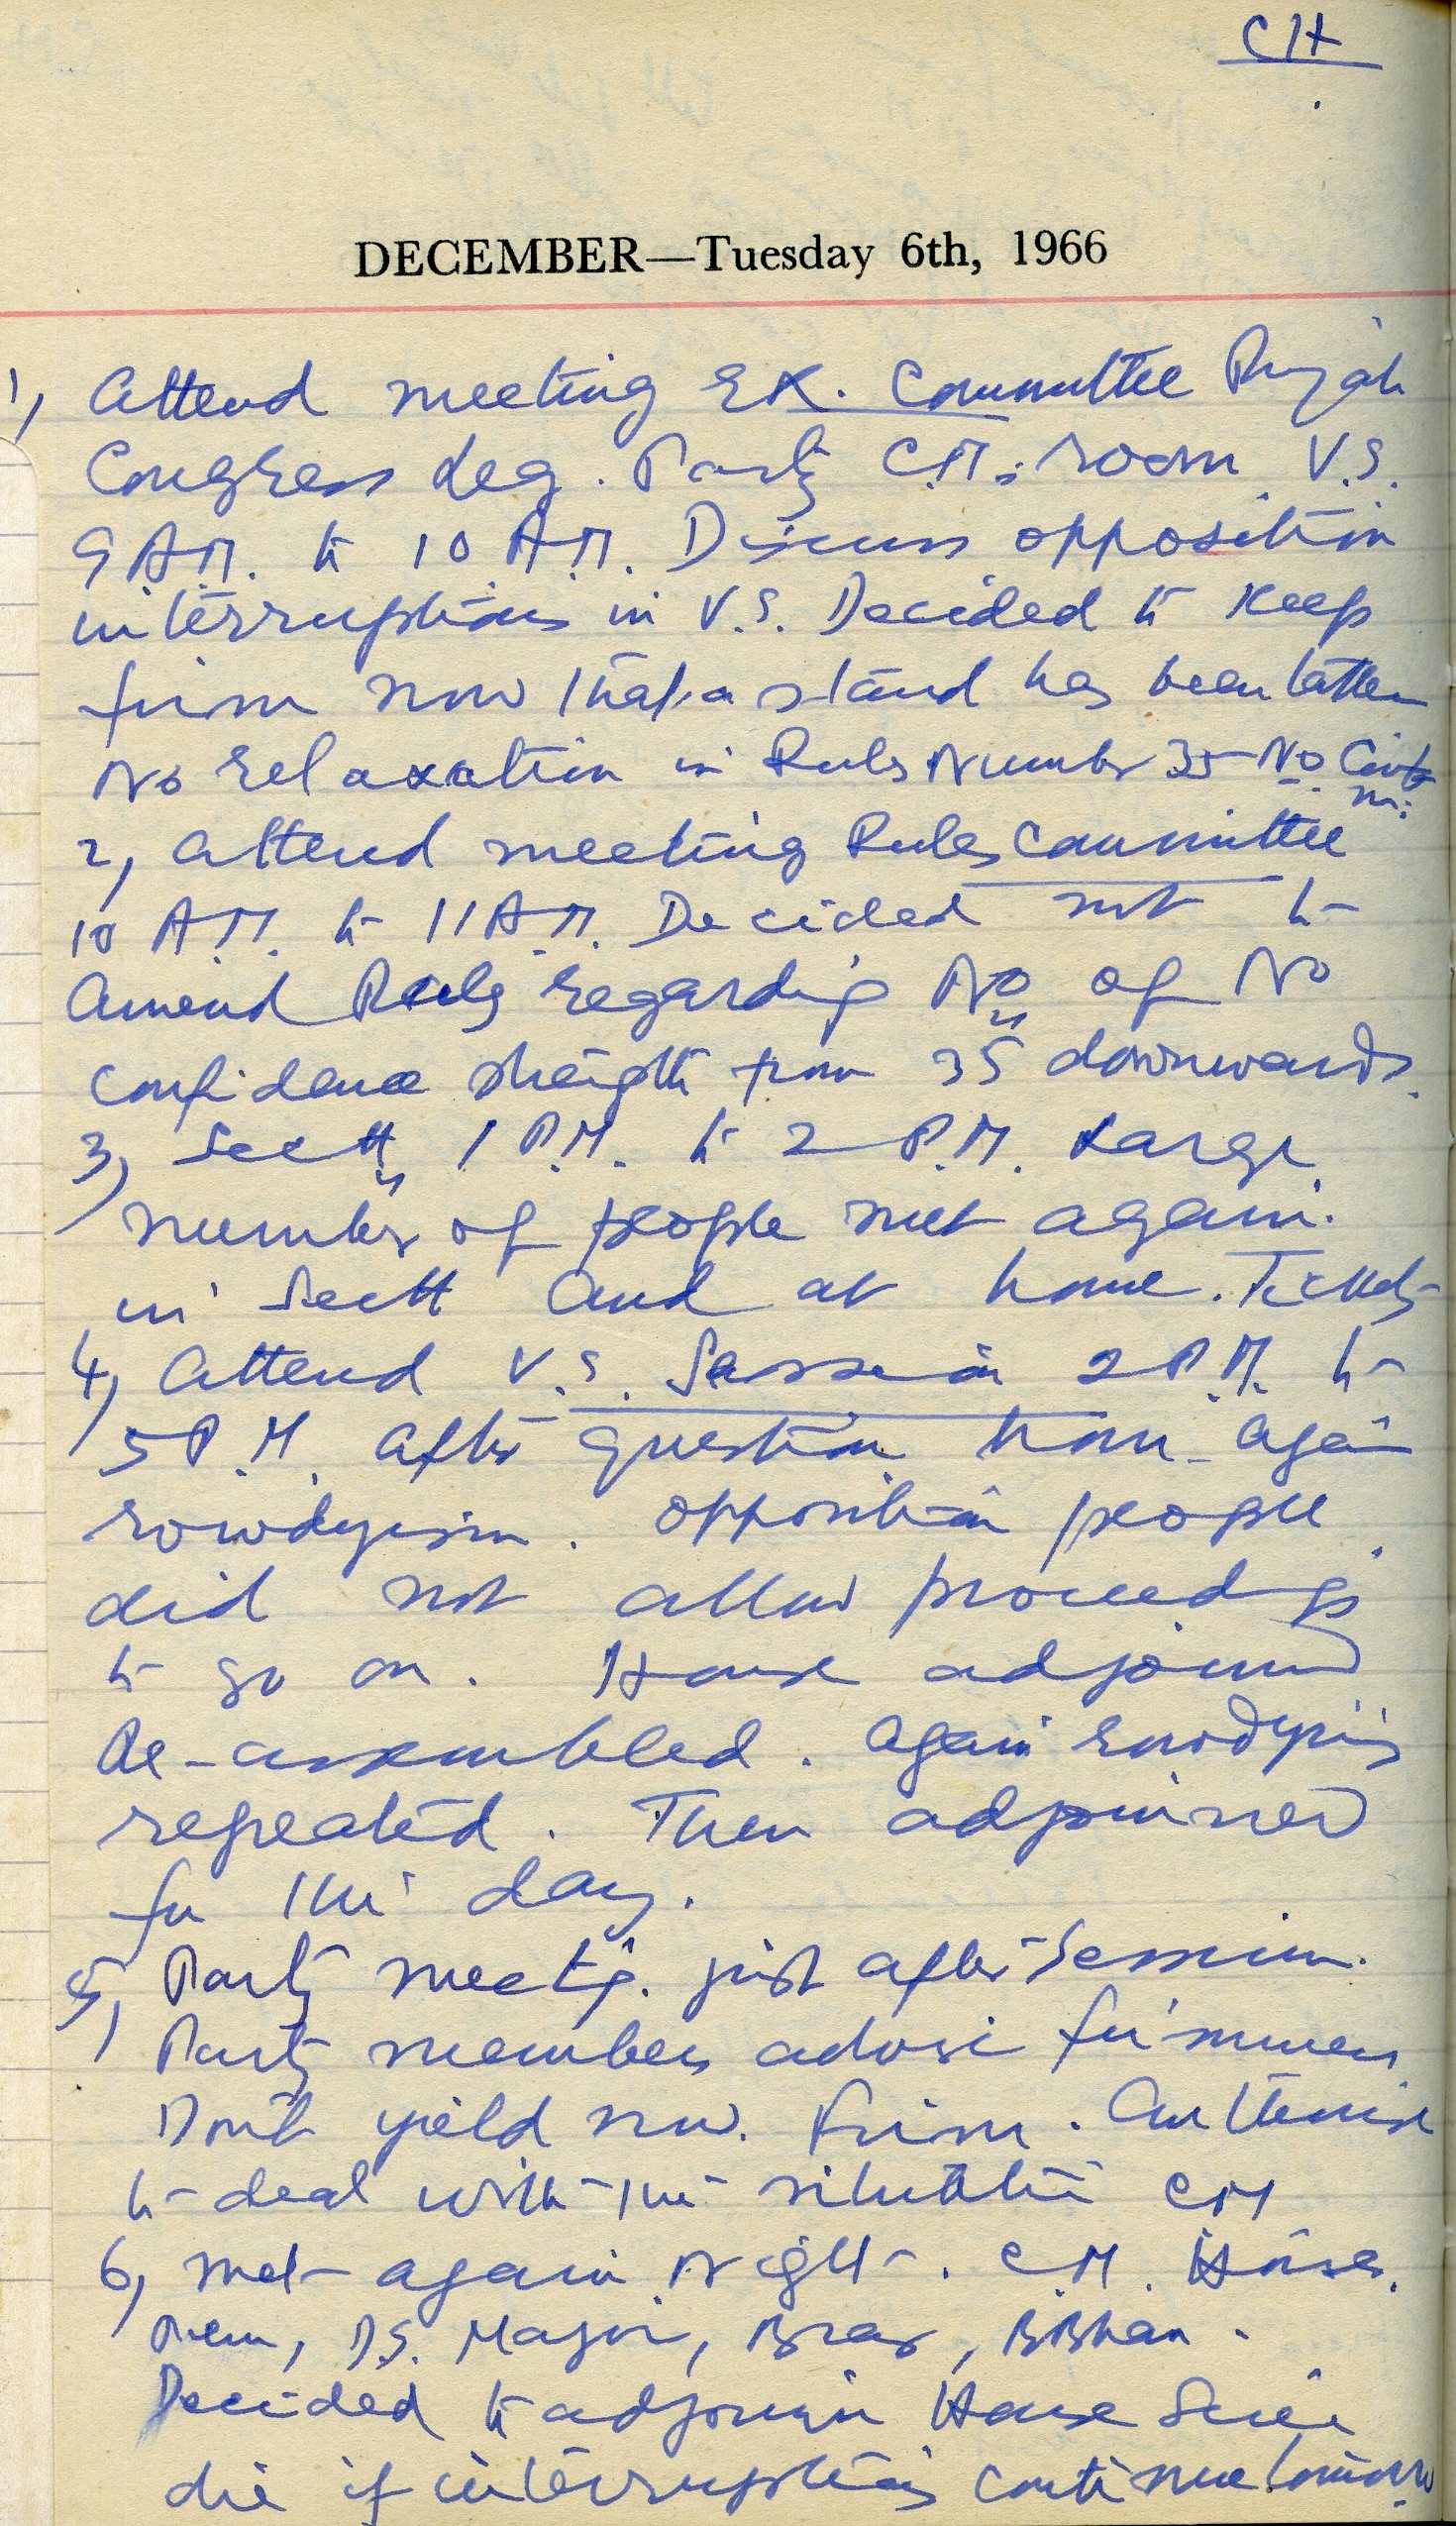 CH
DECEMBER—Tuesday 6th, 1966
1, Attend meeting Ex. Committee Punjab
Congress Leg. Party C.M.s room V.S.
9 A.M. to 10 A.M. Discuss opposition
interruptions in V.S. Decided to keep
firm now that a stand has been taken
No relaxation in Rules Number 35 No
2, Attend meeting Rules Committee
10 A.M. to 11 A.M. Decided not to
Amend Rules regarding No of No
confidence strength from 35 downwards.
3, Sectt 1 P.M. to 2 P.M. Large
number of people met again.
in Sectt and at home. Tickets
4, Attend V.S. Session 2 P.M. to
5 P.M. After question hour again
rowdyism. Opposition people
did not allow proceedings
to go on. House adjourned
Re-assembled. Again rowdyism
repeated. Then adjourned
for the day.
5, Party meeting. just after Session.
Party members advise firmness
Don't yield now. Firm. Authorise
to deal with the situation CM
6, Met again Night. C.M. House.
Prem, D.S. Major, Brar,
Decided to adjourn House Sine
die if interruptions continue tomorrow